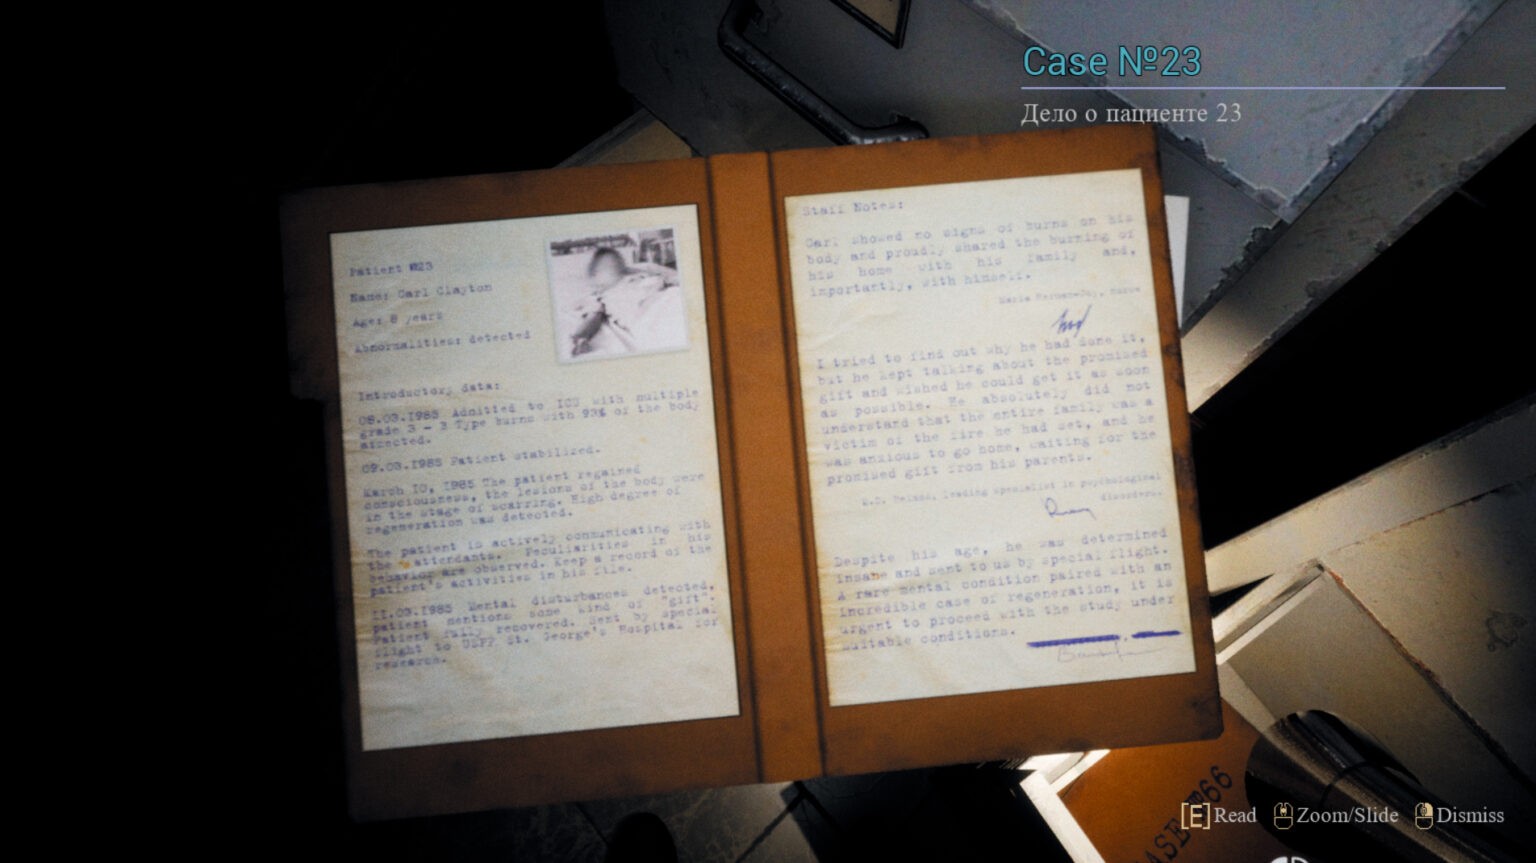 Case №23
Дело о пациенте 23
Patient №23
Name: Carl Clayton
Age: 8 years
Abnormalities: detected
Introductory data:
08.03.1985 Admitted to ICU with multiple
grade 3 - B Type burns with 93% of the body
affected.
09.03.1985 Patient stabilized.
March 10, 1985 The patient regained
consciousness, the lesions of the body were
in the stage of scarring. High degree of
regeneration was detected.
The patient is actively communicating with
the attendants. Peculiarities in his
behavior are observed. Keep a record of the
patient's activities in his file.
11.03.1985 Mental disturbances detected,
patient mentions some kind of "gift".
Patient fully recovered. Sent by special
flight to St. George's Hospital for
research.
Staff Notes:
Carl showed no signs of burns on his
body and proudly shared the burning of
his home with his family and,
importantly, with himself.
nurse
I tried to find out why he had done it,
but he kept talking about the promised
gift and wished he could get it as soon
as possible. He absolutely did not
understand that the entire family was a
victim of the fire he had set, and he
was anxious to go home, waiting for the
promised gift from his parents.
leading specialist in psychological
disorders.
Despite his age, he was determined
insane and sent to us by special flight.
A rare mental condition paired with an
incredible case of regeneration, it is
urgent to proceed with the study under
suitable conditions.
[E] Read Zoom/Slide Dismiss